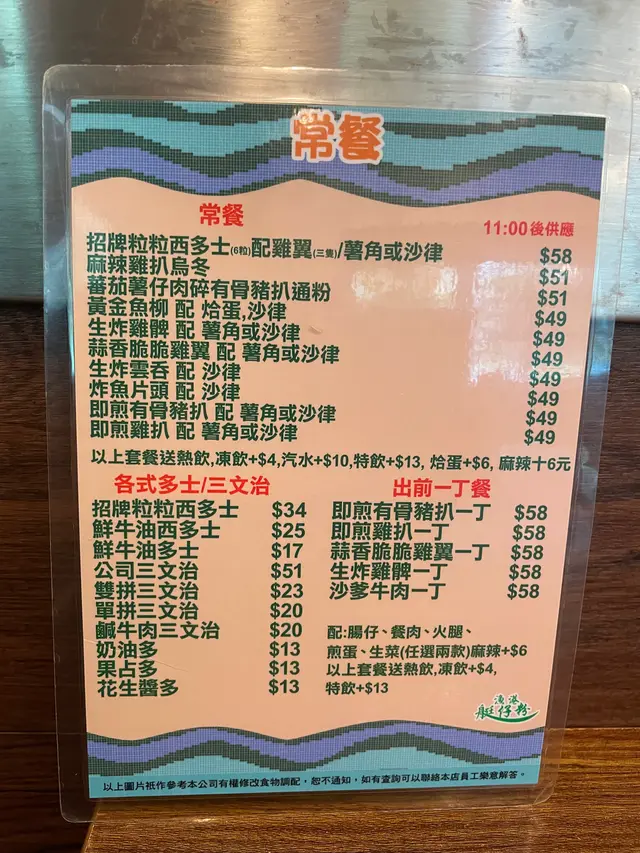 常餐
常餐
11:00後供應
招牌粒粒西多士(6粒)配雞翼(三隻)/薯角或沙律 $58
麻辣雞扒烏冬 $51
蕃茄薯仔肉碎有骨豬扒通粉 $51
黃金魚柳 配 烚蛋,沙律 $49
生炸雞髀 配 薯角或沙律 $49
蒜香脆脆雞翼 配 薯角或沙律 $49
生炸雲吞 配 沙律 $49
炸魚片頭 配 沙律 $49
即煎有骨豬扒 配 薯角或沙律 $49
即煎雞扒 配 薯角或沙律 $49
以上套餐送熱飲,凍飲+$4,汽水+$10,特飲+$13, 烚蛋+$6, 麻辣十6元
各式多士/三文治
招牌粒粒西多士 $34
鮮牛油西多士 $25
鮮牛油多士 $17
公司三文治 $51
雙拼三文治 $23
單拼三文治 $20
鹹牛肉三文治 $20
奶油多 $13
果占多 $13
花生醬多 $13
出前一丁餐
即煎有骨豬扒一丁 $58
即煎雞扒一丁 $58
蒜香脆脆雞翼一丁 $58
生炸雞髀一丁 $58
沙爹牛肉一丁 $58
配:腸仔、餐肉、火腿、
煎蛋、生菜(任選兩款)麻辣+$6
以上套餐送熱飲,凍飲+$4,
特飲+$13
漁港
艇仔粉
以上圖片祇作參考本公司有權修改食物調配，恕不通知，如有查詢可以聯絡本店員工樂意解答。